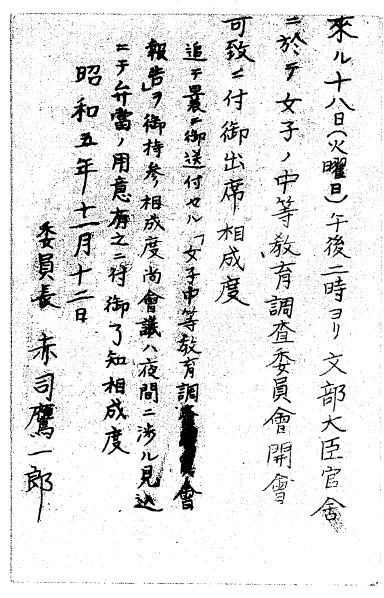 來ル十八日(火曜日)午後二時ヨリ文部大臣官舎
ニ於テ女子ノ中等教育調査委員會開會
可致ニ付御出席相成度
追テ曩ニ御送付セル「女子中等教育調査會
報告」ヲ御持参相成度尚會議ハ夜間ニ渉ル見込
ニテ弁當ノ用意有之ニ付御了知相成度
昭和五年十一月十二日
委員長 赤司鷹一郎